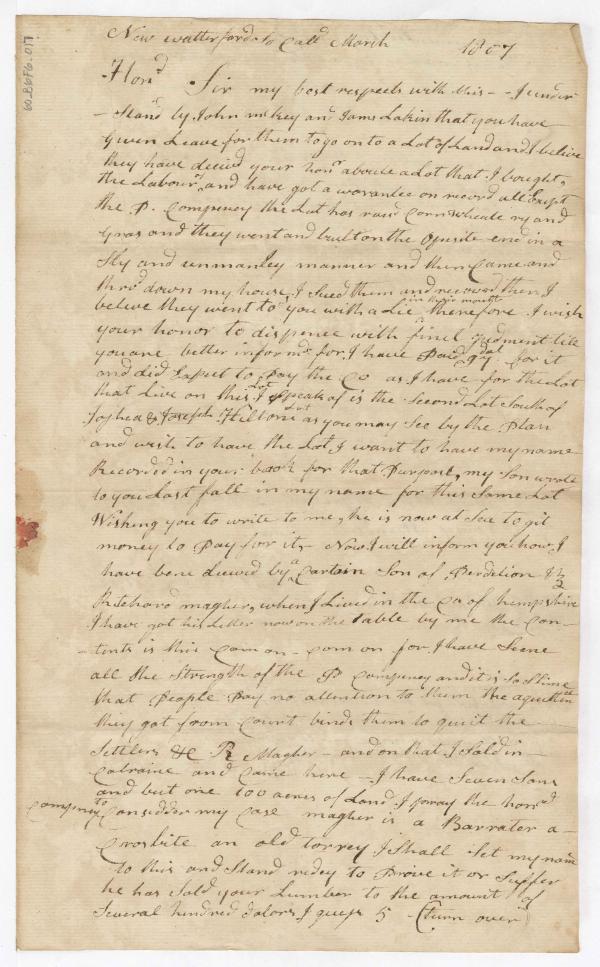 New watterford so Cald March 1807
Hond Sir my best respects with this - I under
-stand by John mckey and James Lakin that you have
Given Leave for them to go on to a Lot of Land and I believe
they have deceivd your honr aboute a Lot that I bought,
the Labour, and have got a warantee on record all Exept
the P. Compeney the Lot has raisd Corn wheate ry and
Gras and they went and built on the Oposite end in a
Sly and unmanley manner and then Came and
thrd down my house, I Sued them and recoverd then I
beleve they went to you with a Lie in their mouth therefore I wish
your honor to dispence with final Judment till
you are better informd for I have Paid for it
and did Expect to Pay the Co as I have for the Lot
that Live on this Lot I Speak of is the Second Lot South of
Joseph Hiltons Lot as you may See by the Plan
and wish to have the Lot I want to have my name
Recorded in your book for that Purpose, my Son wrote
to you Last fall in my name for this Same Lot
Wishing you to write to me, he is now at Sea to git
money to Pay for it, Now I will inform you how I
have bene deceived by a Certain Son of Perdition
Ritchard magher, when I Lived in the Co of hempshire
I have got his Letter now on the table by me the Con-
-tents is this Com on - Com on for I have Seene
all the Strength of the P Compeney and it is So Slime
that People Pay no attention to them the aquitten
they got from Court binds them to quit the
Settlers &c R Magher - and on that I Sold in
Colraine and Came here - I have Seven Sons
and but one 100 acres of Land I pray the hond
Compney to Considder my Case magher is a Barrater a
Crosbite an old torrey I Shall Set my name
to this and Stand redey to Prove it or Suffer
he has Sold your Lumber to the amount of
Several hundred dolors I guess 5 - (turn over)
60-B6F6-017